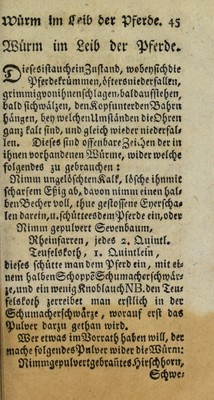 Würm im Leib der Pferde. 45
Würm im Leib der Pferde.
Dieses ist auch ein Zustand, wobey sich die
Pferde krümmen, öfters niederfallen,
grimmig von ihnen schlagen, bald aufstehen,
bald schwälzen, den Kopf unter den Bahrn
hängen, bey welchen Umständen die Ohren
ganz kalt sind, und gleich wieder niederfal-
len. Dieses sind offenbare Zeichen der in
ihnen vorhandenen Würme, wider welche
folgendes zu gebrauchen:
Nimm ungelöschten Kalk, lösche ihn mit
scharfem Eßig ab, davon nimm einen hal-
ben Becher voll, thue gestossene Eyerscha-
len darein, u. schütte es dem Pferde ein, oder
Nimm gepulvert Sevenbaum,
Rheinfarren, jedes 2. Quintl.
Teufelskoth, 1. Quintlein,
dieses schütte man dem Pferde ein, mit ei-
nem halben Schoppē Schumacherschwär-
ze, und ein wenig Knoblauch NB. den Teu-
felskoth zerreibet man erstlich in der
Schumacherschwärze, worauf erst das
Pulver darzu gethan wird.
Wer etwas im Vorrath haben will, der
mache folgendes Pulver wider die Würm:
Nimm gepulvert gebrañtes Hirschhorn,
Schwe-